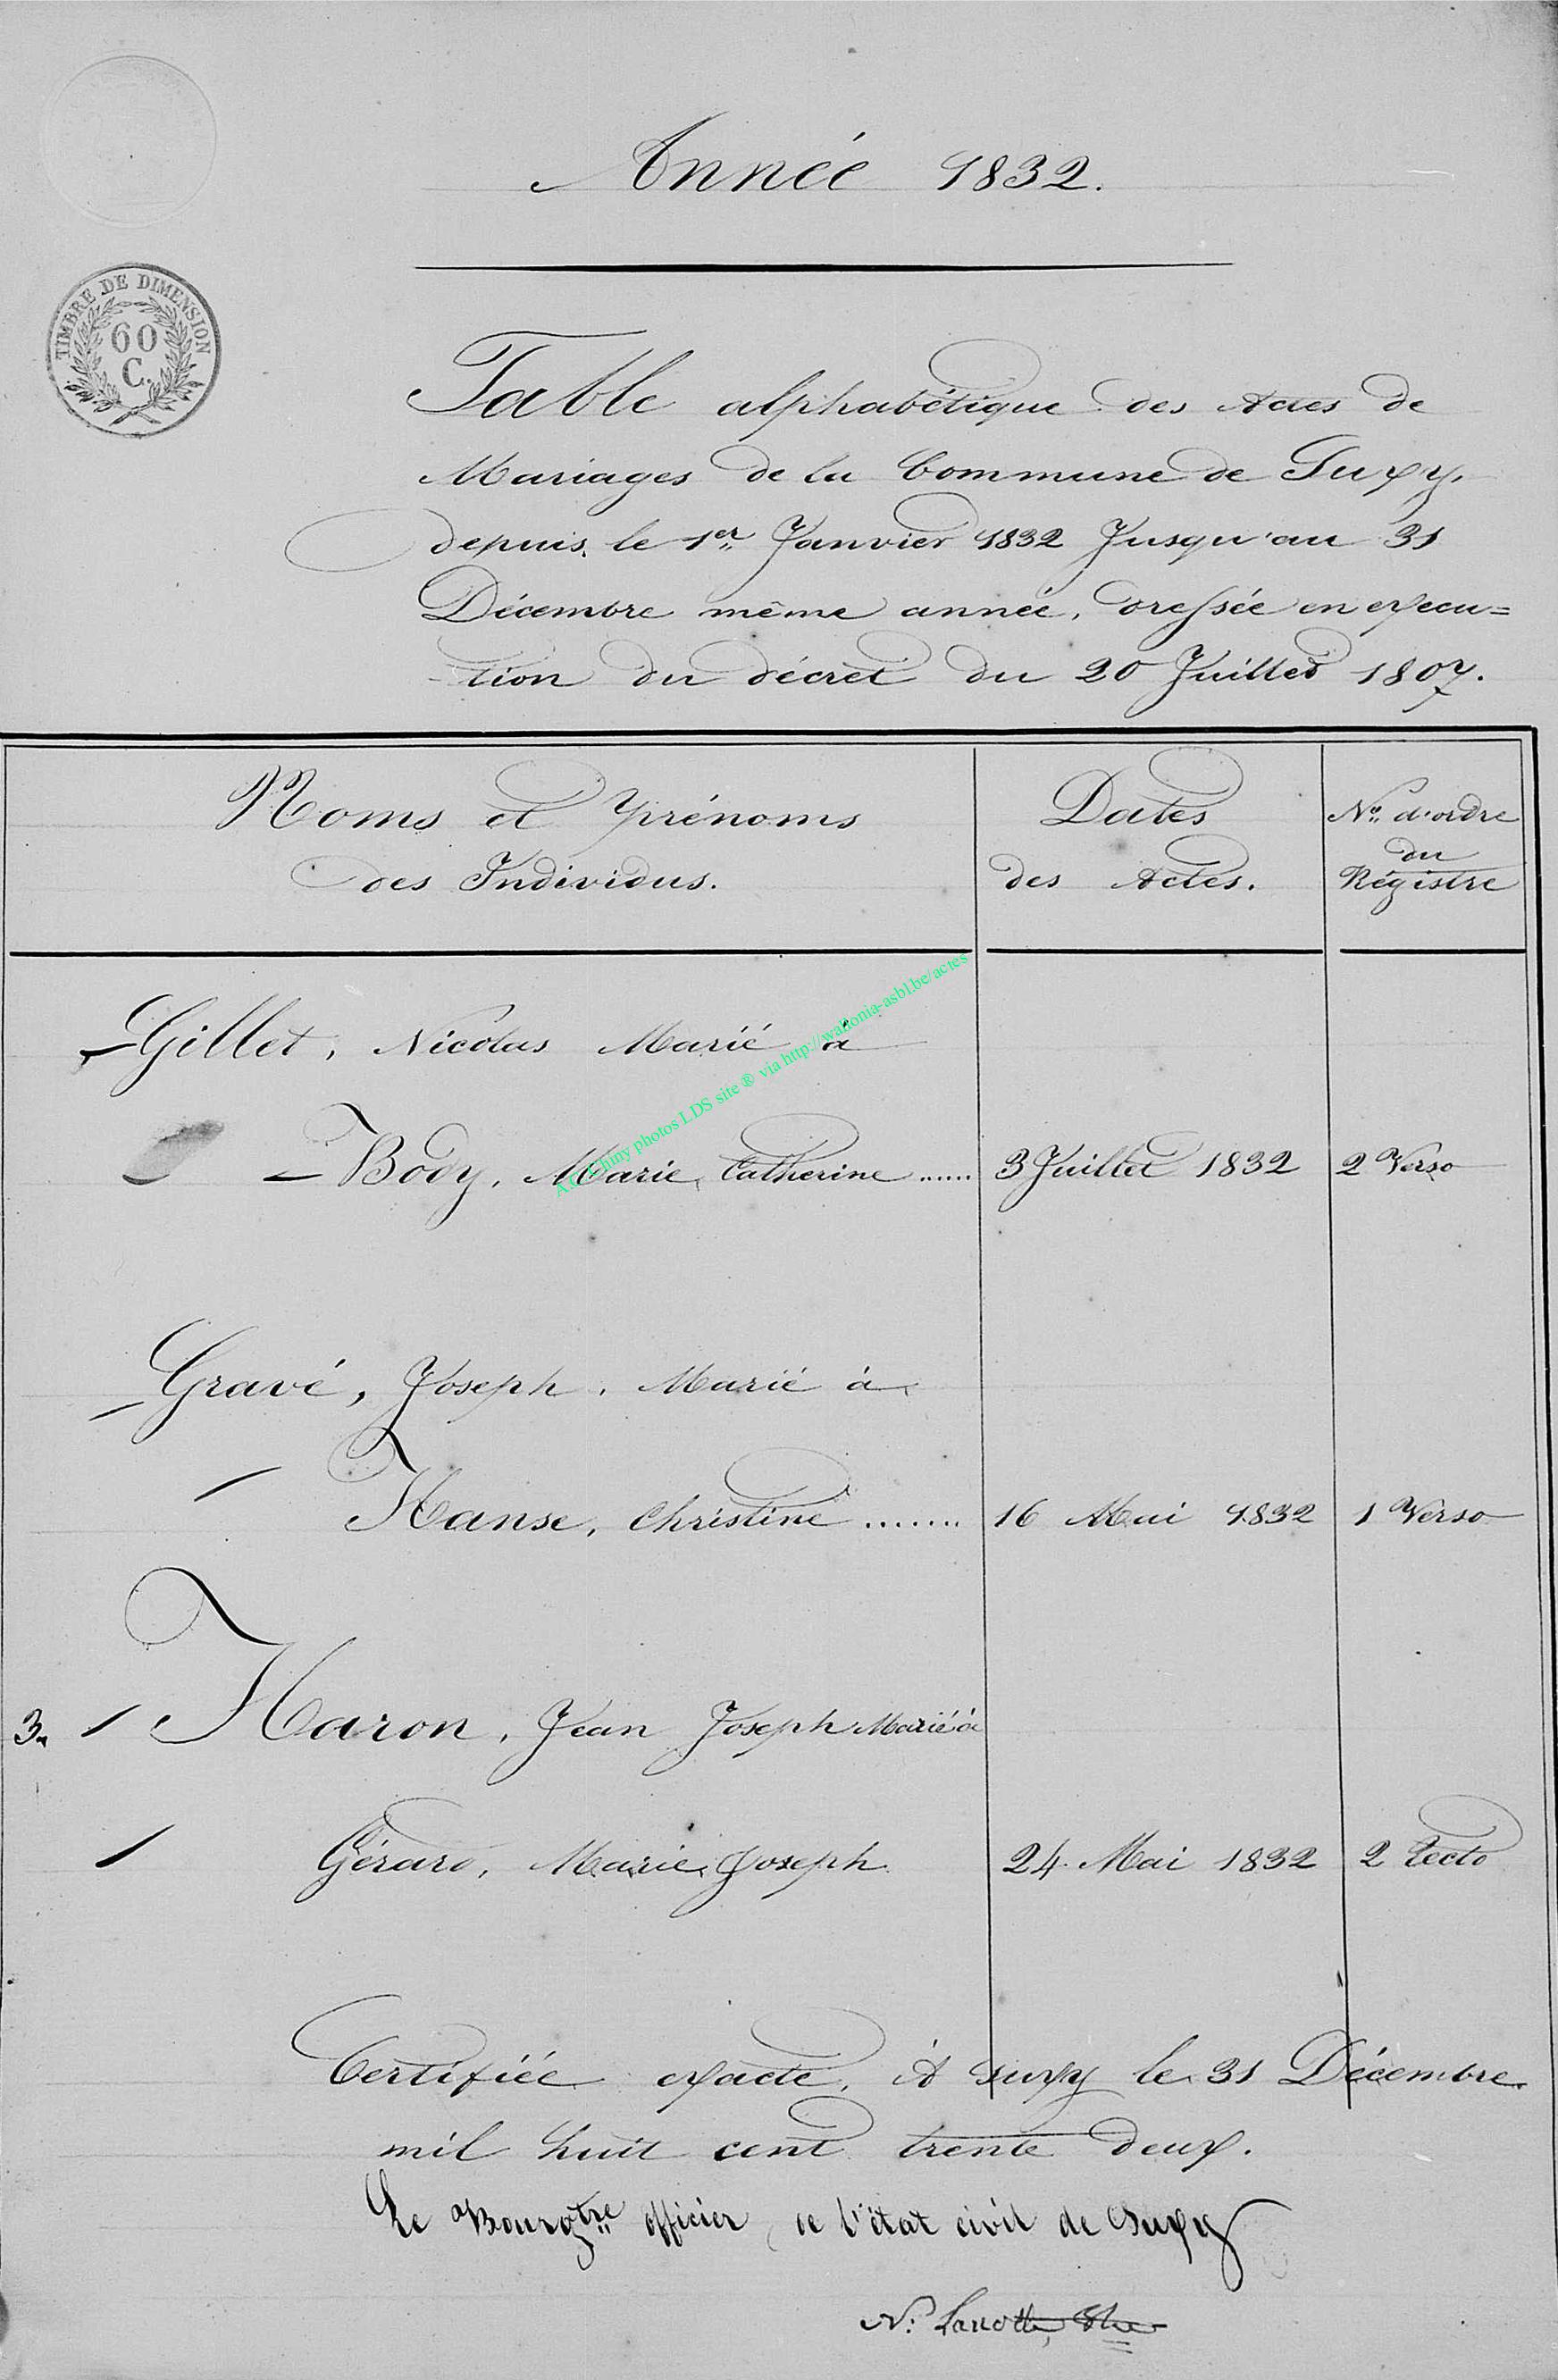 Année 1832.
TIMBRE DE DIMENSION
60
C.
Table alphabétique des Actes de
Mariages de la Commune de Suxy,
depuis le 1er Janvier 1832 Jusqu'au 31
Décembre même année, dressée en execu=
tion du décret du 20 Juillet 1807.
Noms et prénoms
des Individus.
Dates
des Actes.
No. d'ordre
du
Régistre
Gillet, Nicolas Marié à
Body, Marie Catherine ...... 3 Juillet 1832 2 Verso
Gravé, Joseph, Marié à
Hanse, Christine ....... 16 Mai 1832 1 Verso
3. Haron, Jean Joseph Marié à
Gérard, Marie Joseph 24 Mai 1832 2 recto
Certifiée exacte, À Suxy le 31 Décembre
mil huit cent trente deux.
Le Bourgtre officier de l'état civil de Suxy
N: Lanotte
photos LDS site ® via http://wallonia-asbl.be/actes